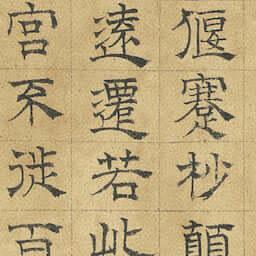 偃蹇杪顛
遠遷若此
宮不徙百